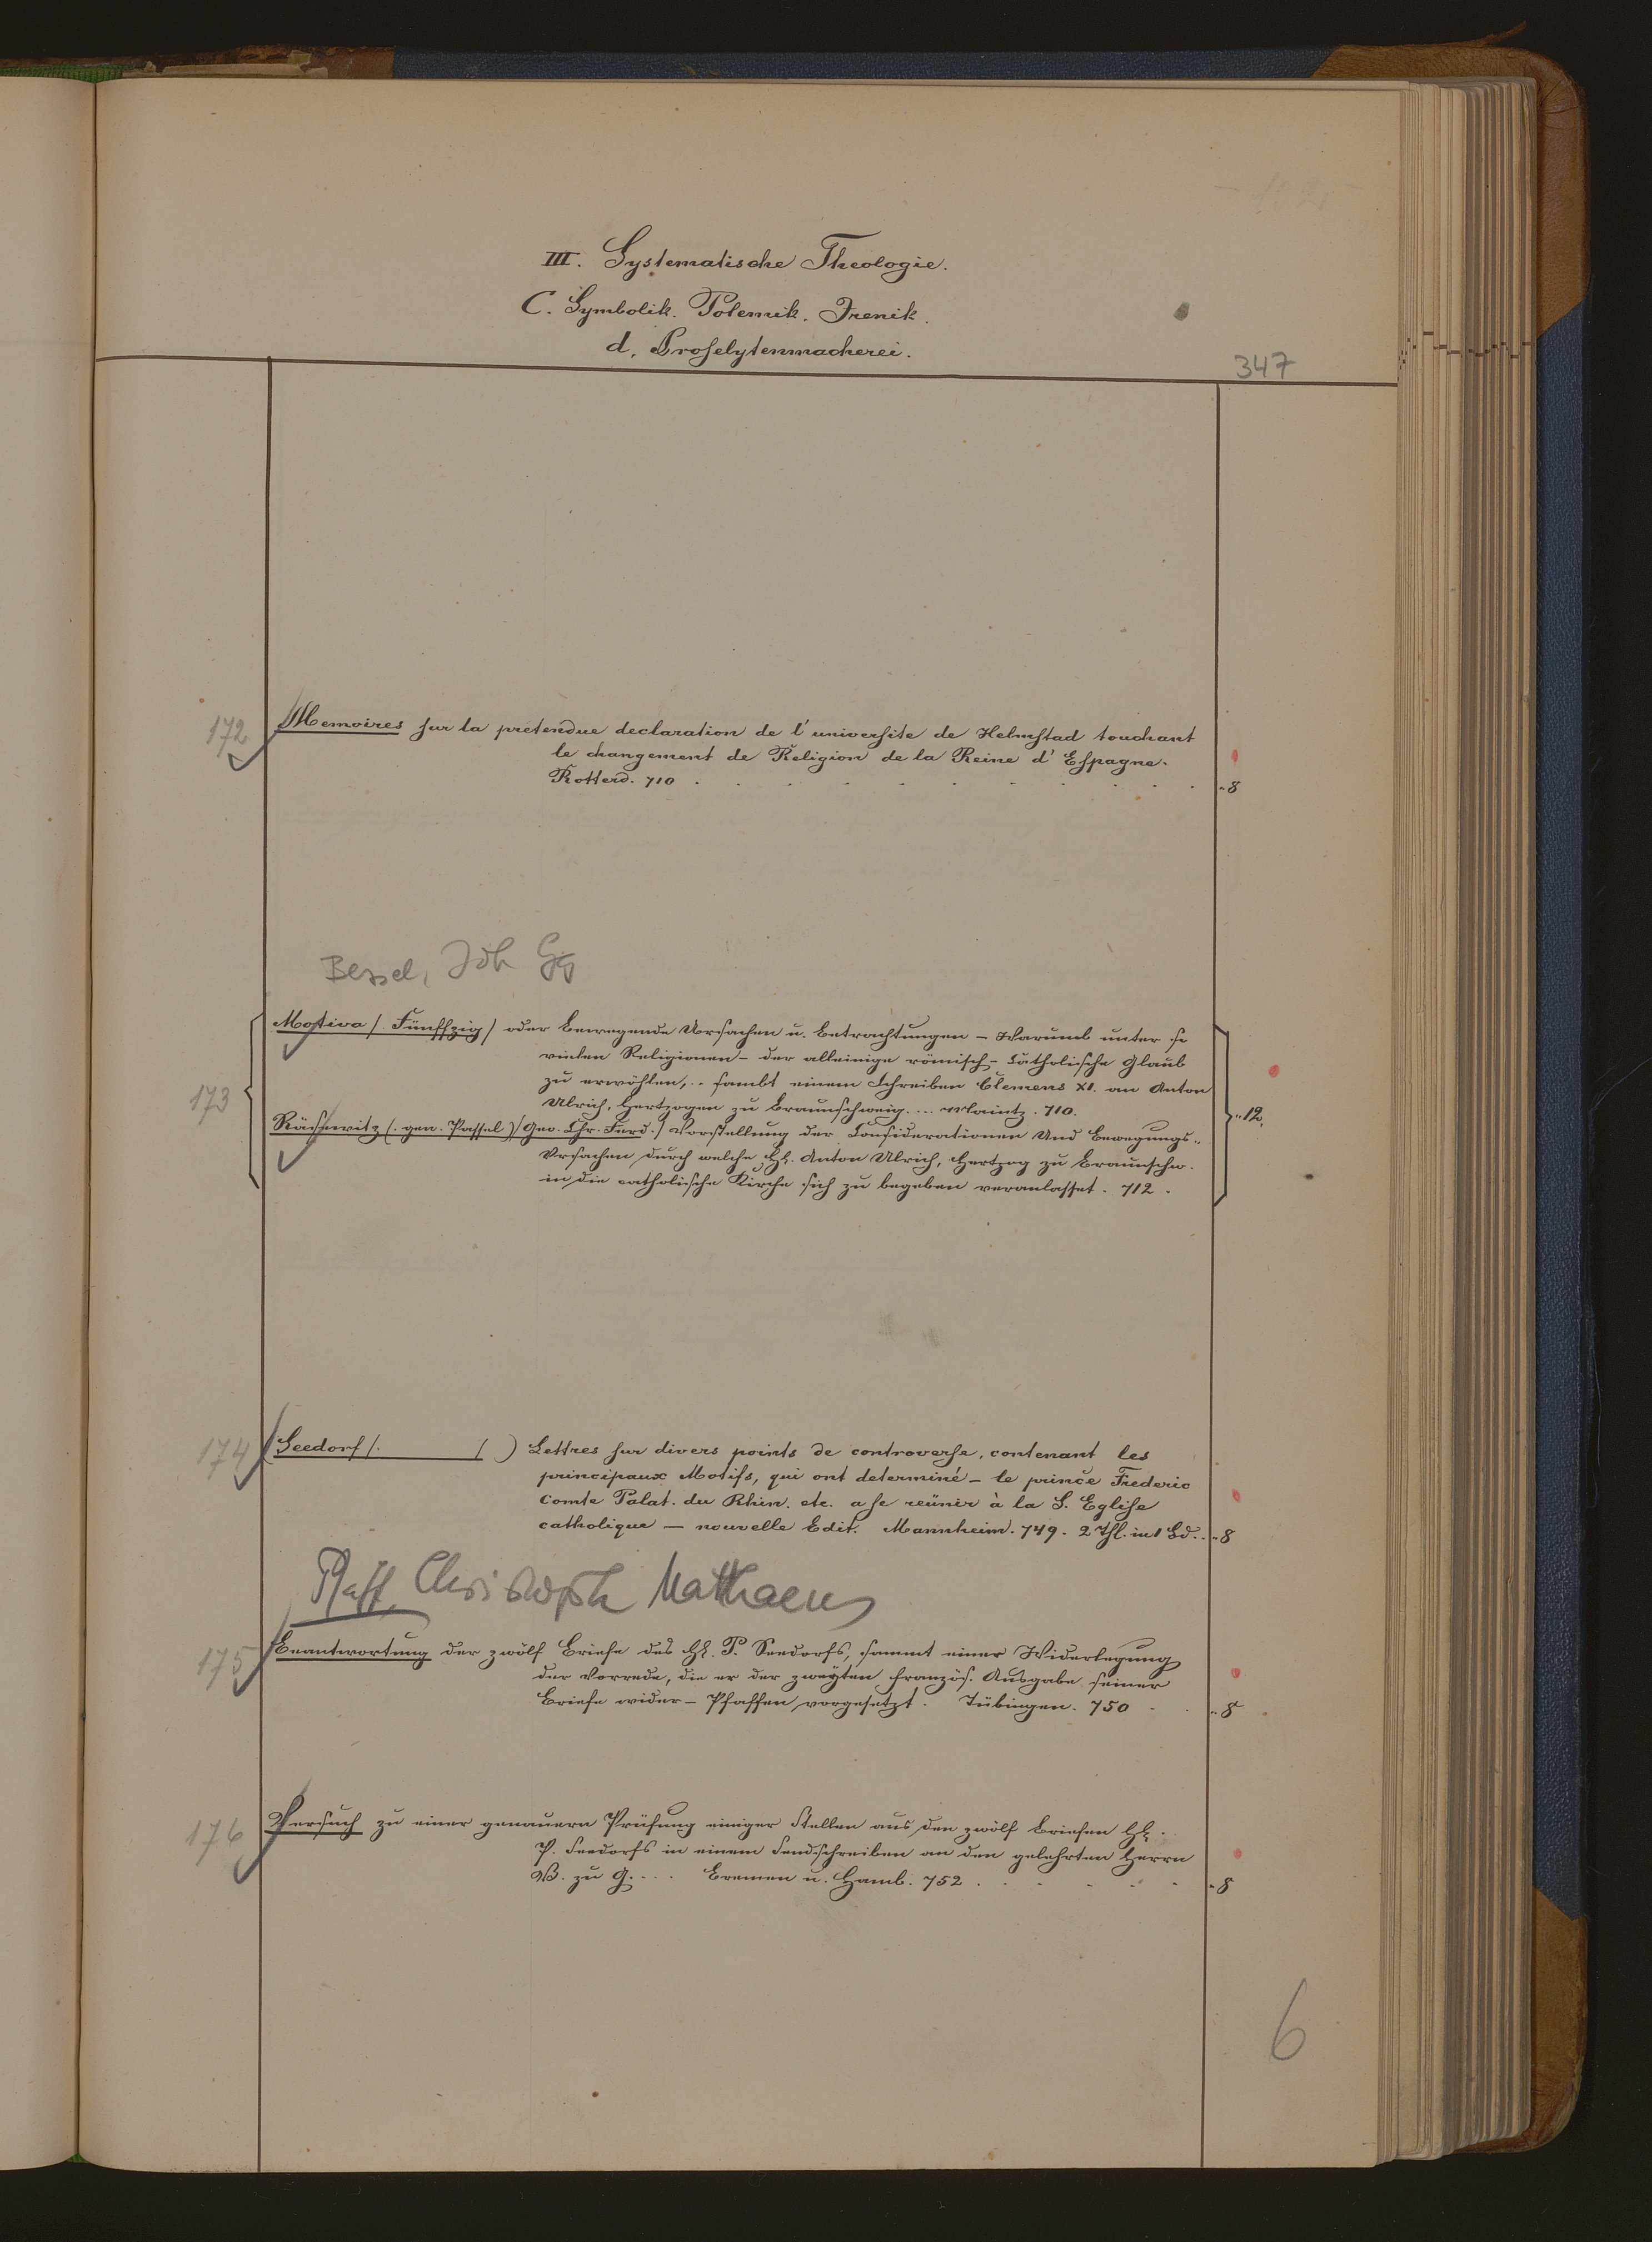 III. Systematische Theologie.
C. Symbolik. Polemik. Irenik.
d, Proselytenmacherei.
347
172 Memoires sur la pretendue declaration de l'universite de Helmstad touchant
le changement de Religion de la Reine d'Espagne.
Rotterd. 710 . . . . . . . . . . „8
Bessel, Joh Gg
Motiva /. Fünffzig / oder Bewegende Ursachen u. Betrachtungen – Warumb unter so
vielen Religionen – der alleinige römisch-Catholische Glaub
zu erwöhlen, .. sambt einem Schreiben Clemens XI. an Anton
173
Ulrich, Hertzogen zu Braunschweig. ... Maintz. 710. „12.
(. gen. Passel.)/ Geo. Chr. Ferd./ Vorstellung der Considerationen Und Bewegungs„
Ursachen durch welche Hh. Anton Ulrich, Hertzog zu Braunschw.
in die catholische Kirche sich zu begeben veranlasset. 712.
174 Seedorf /. /) Lettres sur divers points de controverse, contenant les
principaux Motifs, qui ont determiné – le prince Frederic
Comte Palat. du Rhin. etc. a se reünir à la S. Eglise
catholique – nouvelle Edit. Mannheim. 749. 2 Thl. in 1 Bd. . „8
Pfaff, Christoph Matthaeus
175 Beantwortung der zwölf Briefe des Hh. P. Seedorfs, sammt einer Widerlegung
der Vorrede, die er der zweyten französ. Ausgabe seiner
Briefe wider – Pfaffen vorgesetzt. Tübingen. 750 . . „8
176 Versuch zu einer genauern Prüfung einiger Stellen aus den zwölf Briefen Hh.
P. Seedorfs in einem Sendschreiben an den gelehrten Herrn
B. zu G. ... Bremen u. Hamb. 752 . . . . . . „8
6